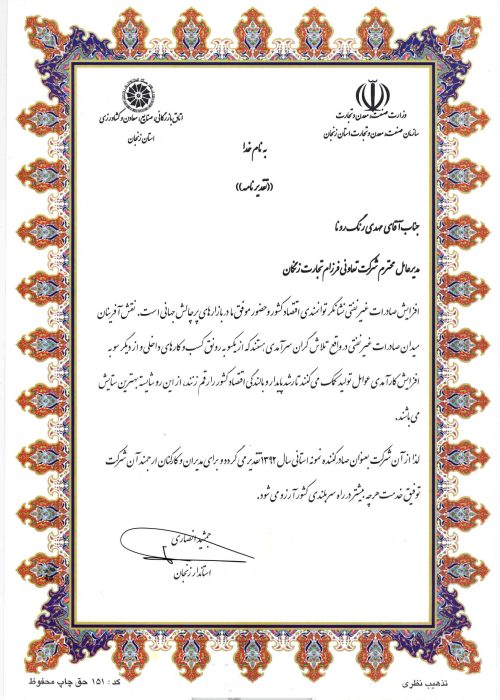 وزارت صنعت، معدن و تجارت
سازمان صنعت، معدن و تجارت استان زنجان
اتاق بازرگانی، صنایع، معادن و کشاورزی
استان زنجان
به نام خدا
((تقدیرنامه))
جناب آقای مهدی رنگ رونا
مدیرعامل محترم شرکت تعاونی فرزام تجارت زنگان
افزایش صادرات غیرنفتی نشانگر توانمندی اقتصاد کشور و حضور موفق ما در بازارهای پرچالش جهانی است. نقش آفرینان
میدان صادرات غیرنفتی در واقع تلاش گران سرآمدی هستند که از یکسو به رونق کسب و کارهای داخلی و از دیگر سو به
افزایش کارآمدی عوامل تولید کمک می کنند تا رشد پایدار و بالندگی اقتصاد کشور را رقم زنند، از این رو شایسته بهترین ستایش
می باشند.
لذا از آن شرکت بعنوان صادرکننده نمونه استانی سال ۱۳۹۲ تقدیر می گردد و برای مدیران و کارکنان ارجمند آن شرکت
توفیق خدمت هرچه بیشتر در راه سربلندی کشور آرزو می شود.
جمشید انصاری
استاندار زنجان
تذهیب نظری
کد : ۱۵۱ حق چاپ محفوظ